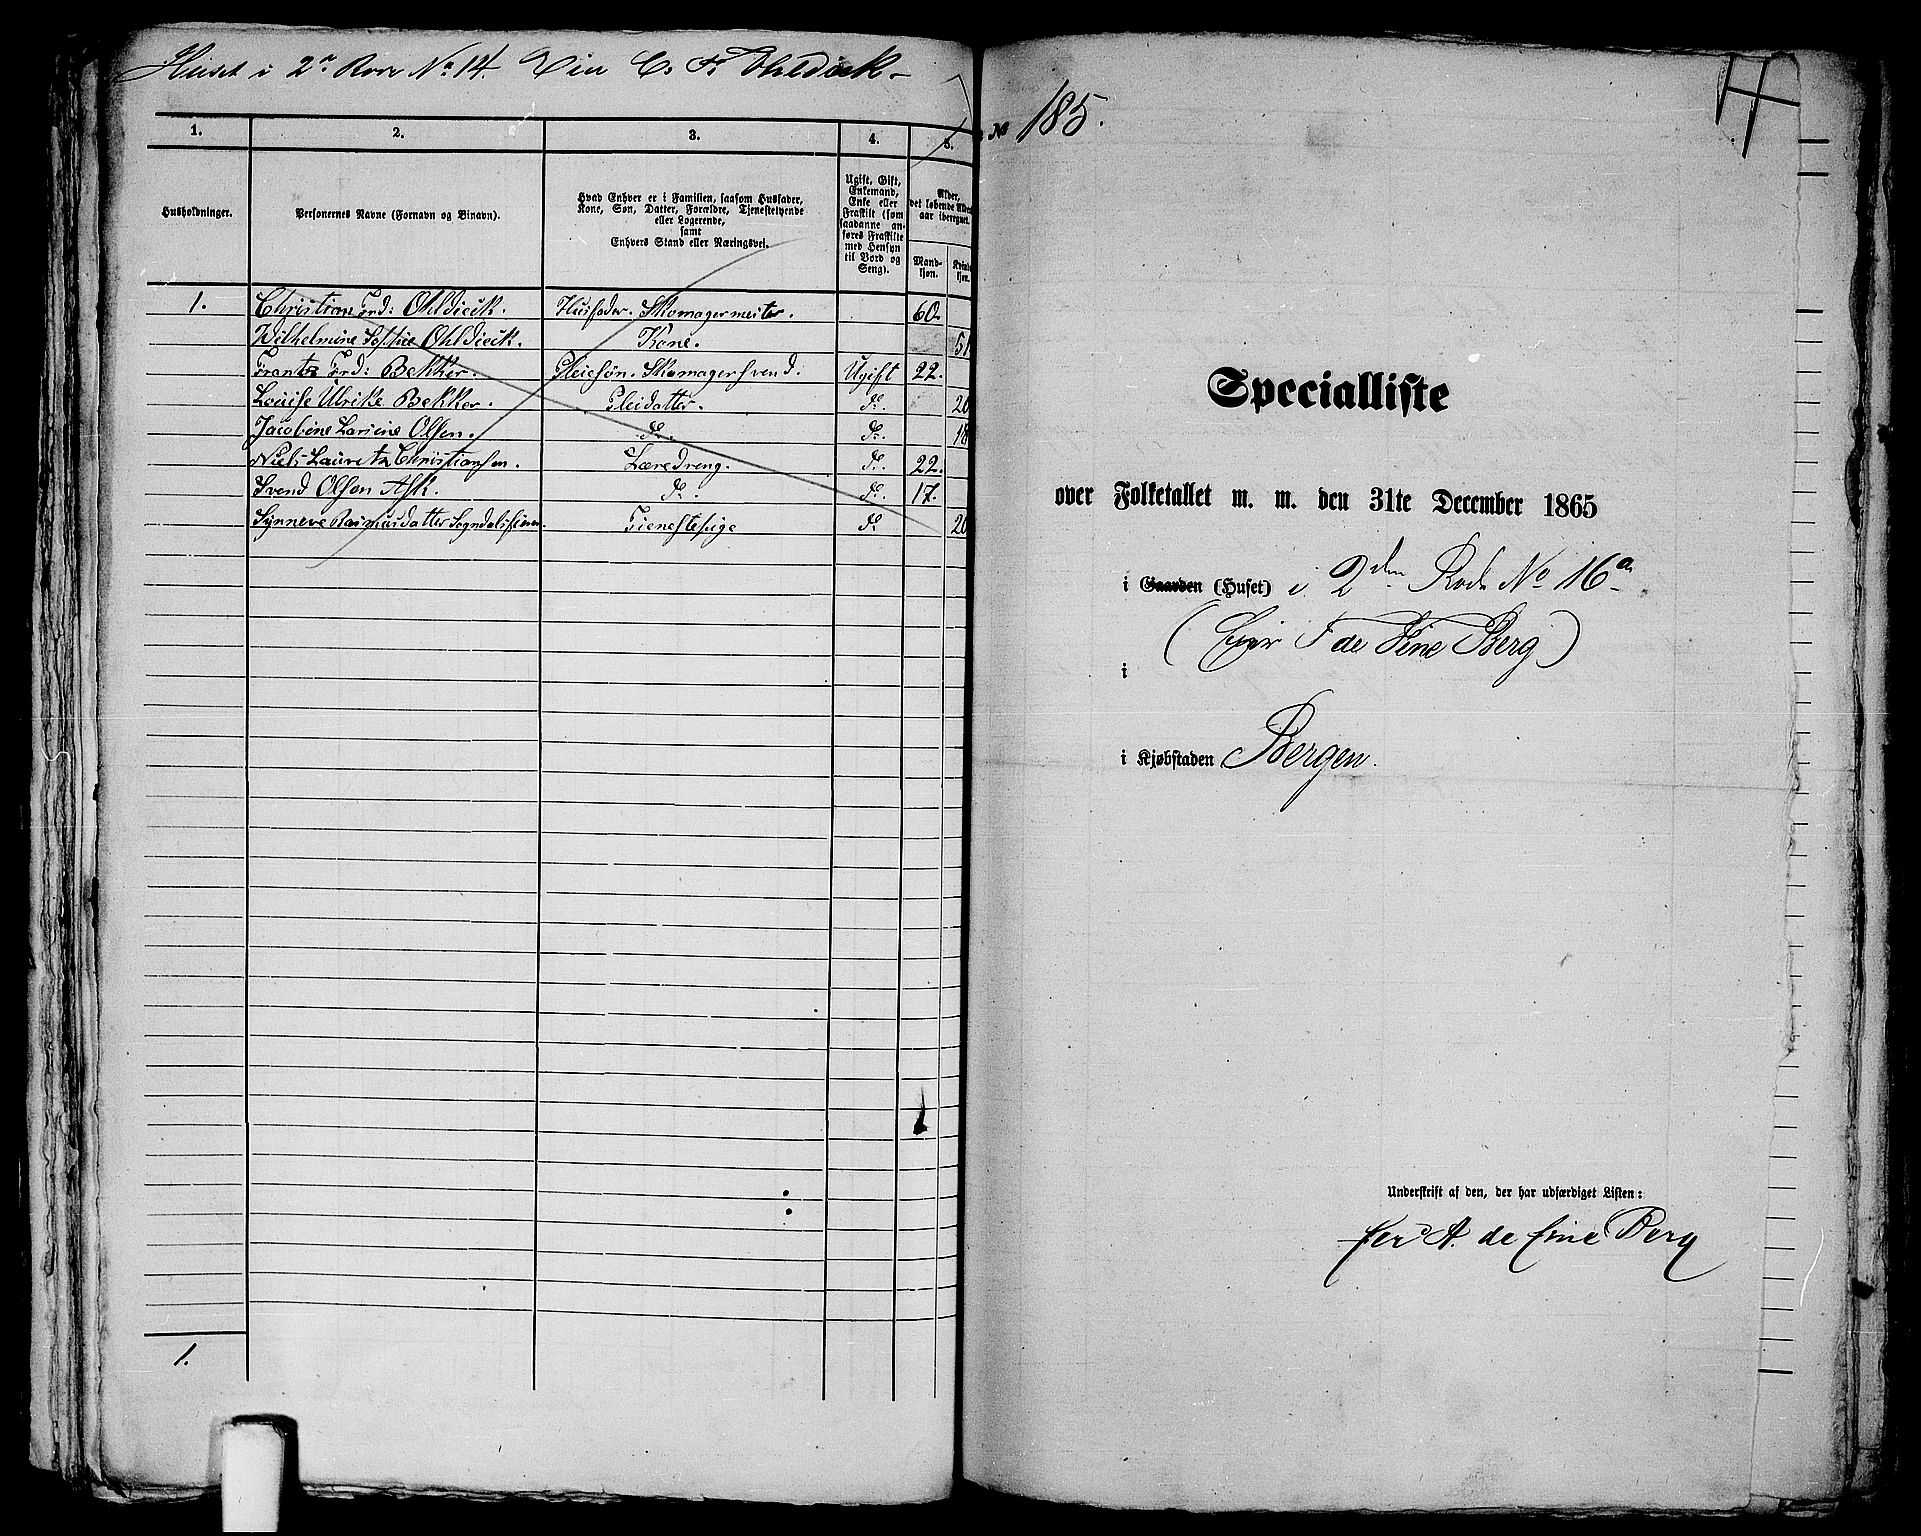 Huset i 2n Rode No 14. Eier C. F. Ohldieck
1. 2. 3. 4. 5.
Husholdninger.
Personernes Navne (Fornavn og Binavn).
Hvad Enhver er i Familien, saasom Husfader,
Kone, Søn, Datter, Forældre, Tjenestetyende
eller Logerende,
samt
Enhvers Stand eller Næringsvei.
Ugift, Gift,
Enkemand,
Enke eller
Fraskilt (som
saadanne an-
føres Fraskilte
med Hensyn
til Bord og
Seng).
Alder,
det løbende Alders-
aar iberegnet.
Mand-
kjøn.
Kvinde-
kjøn.
1. Christian Frd: Ohldieck. Husfader. Skomagermester. 60.
Wilhelmine Sophie Ohldieck. Kone. 51
Frantz Frd: Bekker. Pleiesøn. Skomagersvend. Ugift 22.
Louise Ulrike Bekker. Pleidatter. do. 20
Jacobine Larsine Olsen. do. do. 18
Niels Lauretz Christiansen. Læredreng. do. 22.
Svend Olson Ask. do. do. 17.
Synneve Rasmusdatter Sogndal Tienestepige do 20
1.
No 185.
Specialliste
over Folketallet m. m. den 31te December 1865
i Gaarden (Huset) i 2den Rode No 16a
(Eier F de Fine Berg)
i
i Kjøbstaden Bergen.
Underskrift af den, der har udfærdiget Listen:
A. de Fine Berg